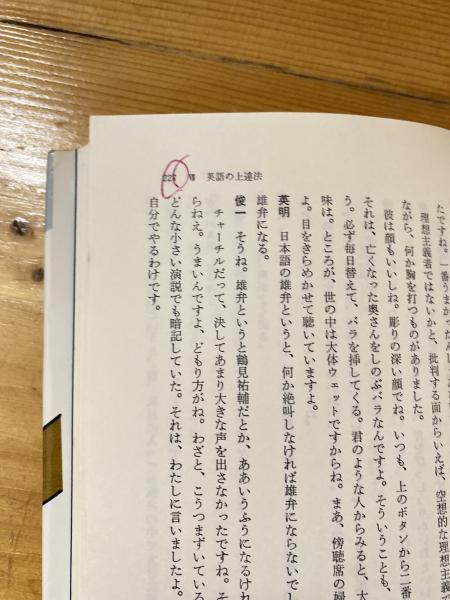 226 Ⅶ 英語の上達法
たですね。一番うまかった
理想主義者ではないかと、批判する面からいえば、空想的な理想主義で
ながら、何か胸を打つものがありました。
彼は顔もいいしね。彫りの深い顔でね。いつも、上のボタンから二番
それは、亡くなった奥さんをしのぶバラなんですよ。そういうことも、
う。必ず毎日替えて、バラを挿してくる。君のような人からみると、大
味は。ところが、世の中は大体ウェットですからね。まあ、傍聴席の婦
よ。目をきらめかせて聴いていますよ。
英明 日本語の雄弁というと、何か絶叫しなければ雄弁にならないでし
雄弁になる。
俊一 そうね。雄弁というと鶴見祐輔だとか、ああいうふうになるけれ
チャーチルだって、決してあまり大きな声を出さなかったですね。そ
らねえ。うまいんですよ、どもり方がね。わざと、こうつまずいている
どんな小さい演説でも暗記していた。それは、わたしに言いましたよ。
自分でやるわけです。